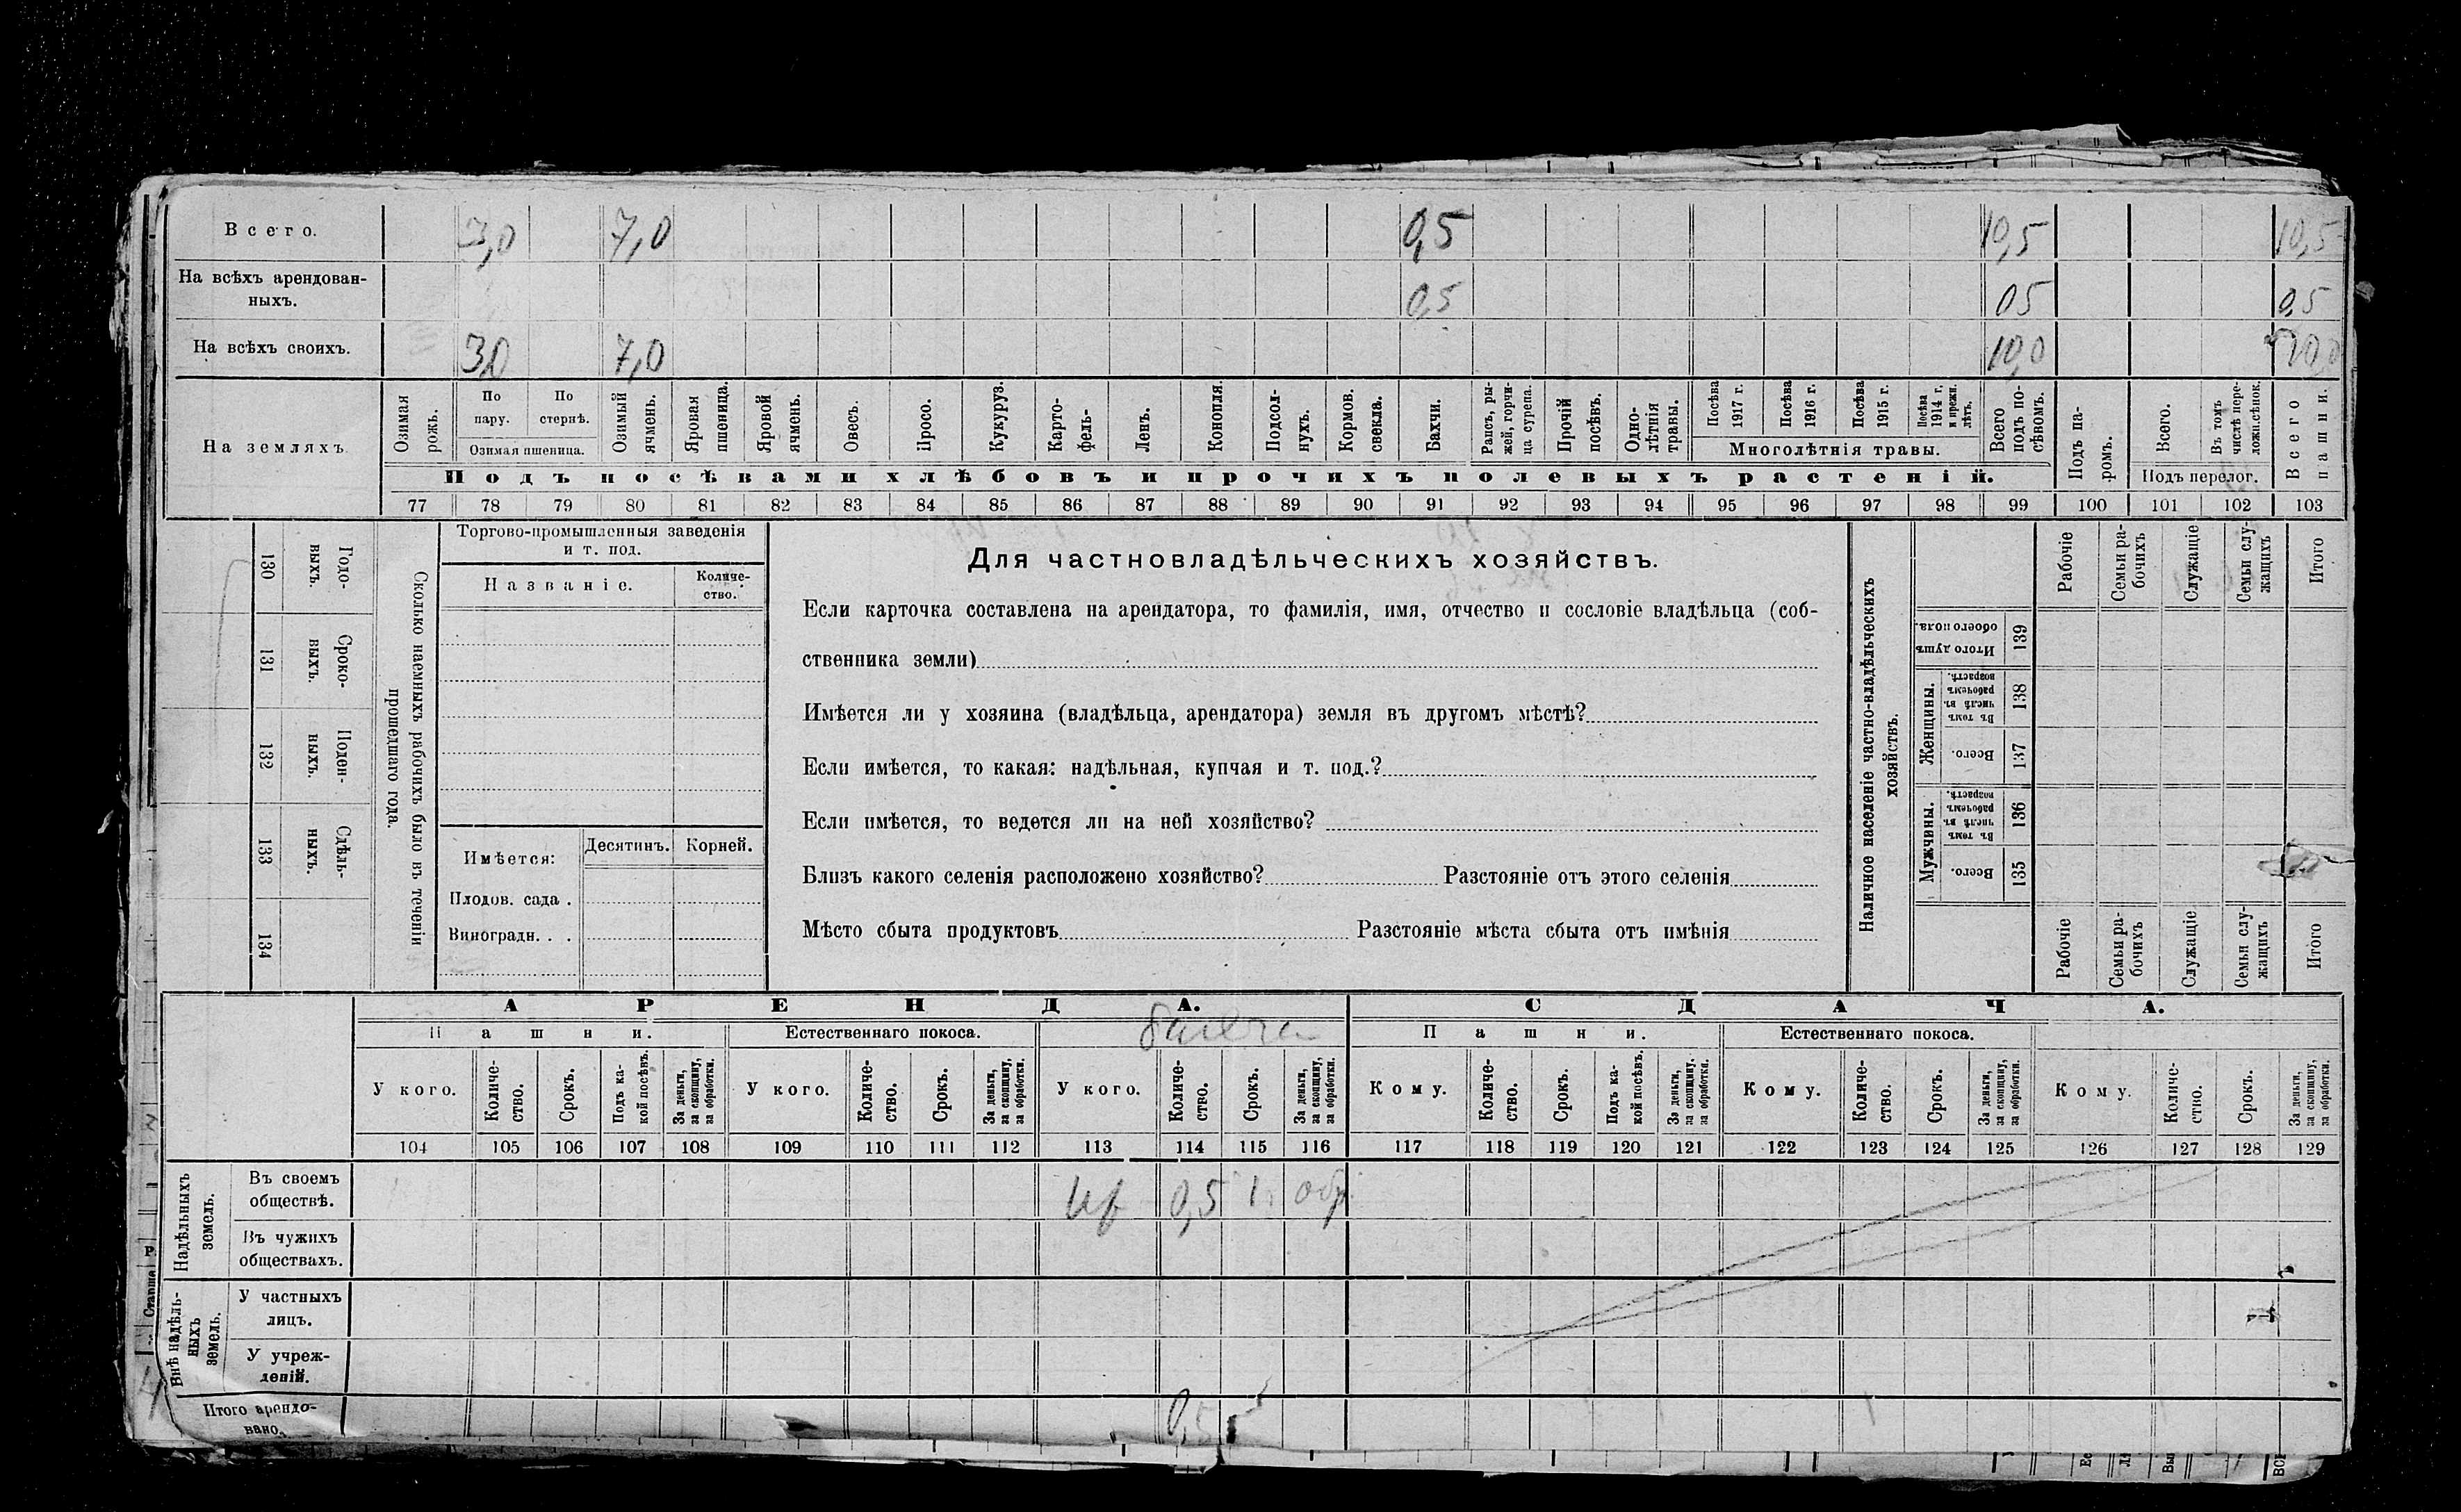 Всего. 3,0 7,0 0,5 10,5 10,5
На всѣхъ арендован-
ныхъ. 0,5 05 0,5
На всѣхъ своихъ. 3,0 7,0 10,0 10,0
На земляхъ
Озимая рожь.
По пару.
По стернѣ.
Озимая пшеница.
Озимый ячмень.
Яровая пшеница.
Яровой ячмень.
Овесъ.
Просо.
Кукуруз.
Карто-
фель-
Ленъ.
Конопля.
Подсол-
нухъ.
Кормов.
свекла.
Бахчи.
Рапсъ, ры-
жей, горчи-
ца сурепа.
Прочій
посѣвъ.
Одно-
лѣтнія
травы.
Посѣва
1917 г.
Посѣва
1916 г.
Посѣва
1915 г.
Посѣва
1914 г.
и прежн.
лѣтъ.
Многолѣтнія травы.
Всего
подъ по-
сѣвомъ.
Подъ па-
ромъ.
Всего.
Въ томъ
числѣ пере-
ложн. сѣнок.
Подъ перелог.
Всего
пашни.
Подъ посѣвами хлѣбовъ и прочихъ полевыхъ растеній.
77 78 79 80 81 82 83 84 85 86 87 88 89 90 91 92 93 94 95 96 97 98 99 100 101 102 103
130 Годо-
выхъ.
131 Сроко-
выхъ.
132 Поден-
ныхъ.
133 Сдѣль-
ныхъ.
134
Сколько наемныхъ рабочихъ было въ теченіи
прошедшаго года.
Торгово-промышленныя заведенія
и т. под.
Названіе.
Количе-
ство.
Имѣется: Десятинъ. Корней.
Плодов. сада .
Виноградн. . .
Для частновладѣльческихъ хозяйствъ.
Если карточка составлена на арендатора, то фамилія, имя, отчество и сословіе владѣльца (соб-
ственника земли)
Имѣется ли у хозяина (владѣльца, арендатора) земля въ другомъ мѣстѣ?
Если имѣется, то какая: надѣльная, купчая и т. под.?
Если имѣется, то ведется ли на ней хозяйство?
Близъ какого селенія расположено хозяйство? Разстояніе отъ этого селенія
Мѣсто сбыта продуктовъ Разстояніе мѣста сбыта отъ имѣнія
Наличное населеніе частно-владѣльческихъ
хозяйствъ.
Рабочіе
Семьи ра-
бочихъ
Служащіе
Семьи слу-
жащихъ
Итого
Итого душъ
обоего пола.
139
Женщины.
Въ томъ
числѣ въ
рабочемъ
возрастѣ.
138
Всего.
137
Мужчины.
Въ томъ
числѣ въ
рабочемъ
возрастѣ.
136
Всего.
135
Рабочіе
Семьи ра-
бочихъ
Служащіе
Семьи слу-
жащихъ
Итого
АРЕНДА. СДАЧА.
Пашни. Естественнаго покоса. Пашни. Естественнаго покоса.
У кого.
Количе-
ство.
Срокъ.
Подъ ка-
кой посѣвъ.
За деньги,
за скопщину,
за обработки.
У кого.
Количе-
ство.
Срокъ.
За деньги,
за скопщину,
за обработки.
У кого.
Количе-
ство.
Срокъ.
За деньги,
за скопщину,
за обработки.
Кому.
Количе-
ство.
Срокъ.
Подъ ка-
кой посѣвъ.
За деньги,
за скопщину,
за обработки.
Кому.
Количе-
ство.
Срокъ.
За деньги,
за скопщину,
за обработки.
Кому.
Количе-
ство.
Срокъ.
За деньги,
за скопщину,
за обработки.
104 105 106 107 108 109 110 111 112 113 114 115 116 117 118 119 120 121 122 123 124 125 126 127 128 129
Надѣльныхъ
земель.
Въ своемъ
обществѣ. 0,5 1 обр.
Въ чужихъ
обществахъ.
Внѣ надѣль-
ныхъ
земель.
У частныхъ
лицъ.
У учреж-
деній.
Итого арендо-
вано. 0,5